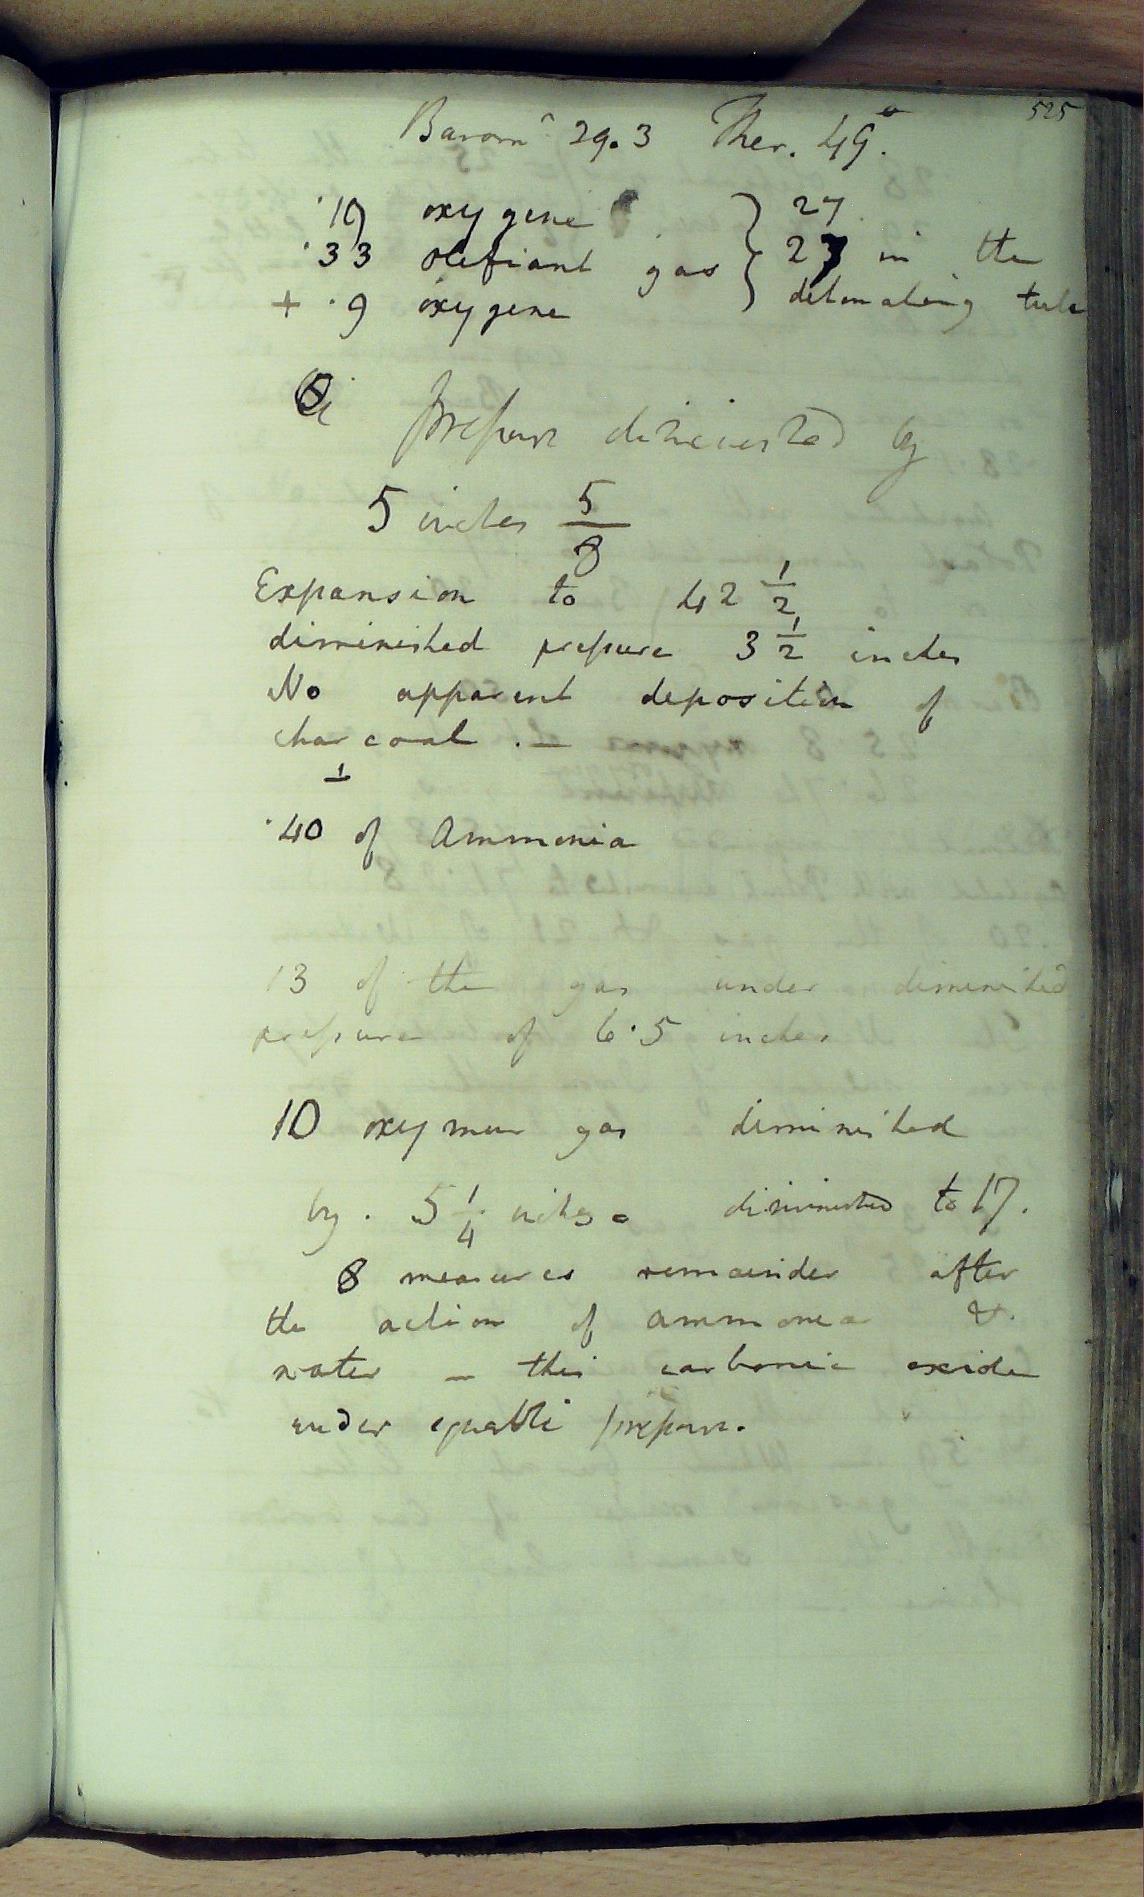 525
Barom^r 29.3 Ther. 49°.
·19 oxygene } 27
·33 olefiant gas } 27 in the
+ ·9 oxygene } detonating tube
prefsure diminished by
5 inches 5/8
Expansion to 42 1/2
diminished prefsure 3 1/2 inches
No apparent deposition of
charcoal . —
1
·40 of Ammonia
13 of the gas under diminished
prefsure of 6·5 inches
10 oxymur gas diminished
by . 5 1/4 inches = diminished to 17.
8 measures remainder after
the action of ammonia &.
water — this carbonic oxide
under equable prefsure.